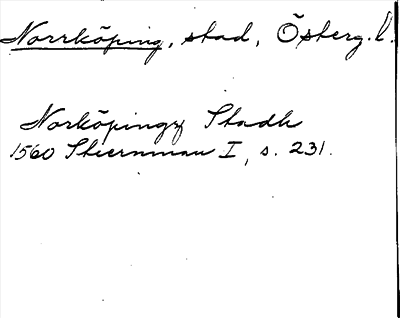 Norrköping, stad, Österg. l.
Norköpingz Stadh
1560 Stiernman I, s. 231.